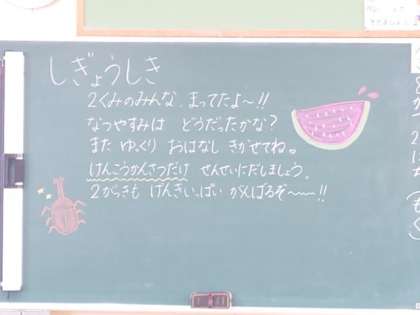 しぎょうしき
2くみのみんな、まってたよ〜!!
なつやすみは どうだったかな?
また ゆっくり おはなし きかせてね。
けんこうかんさつだけ せんせいにだしましょう。
2がっきも げんきいっぱい がんばるぞ〜〜!!